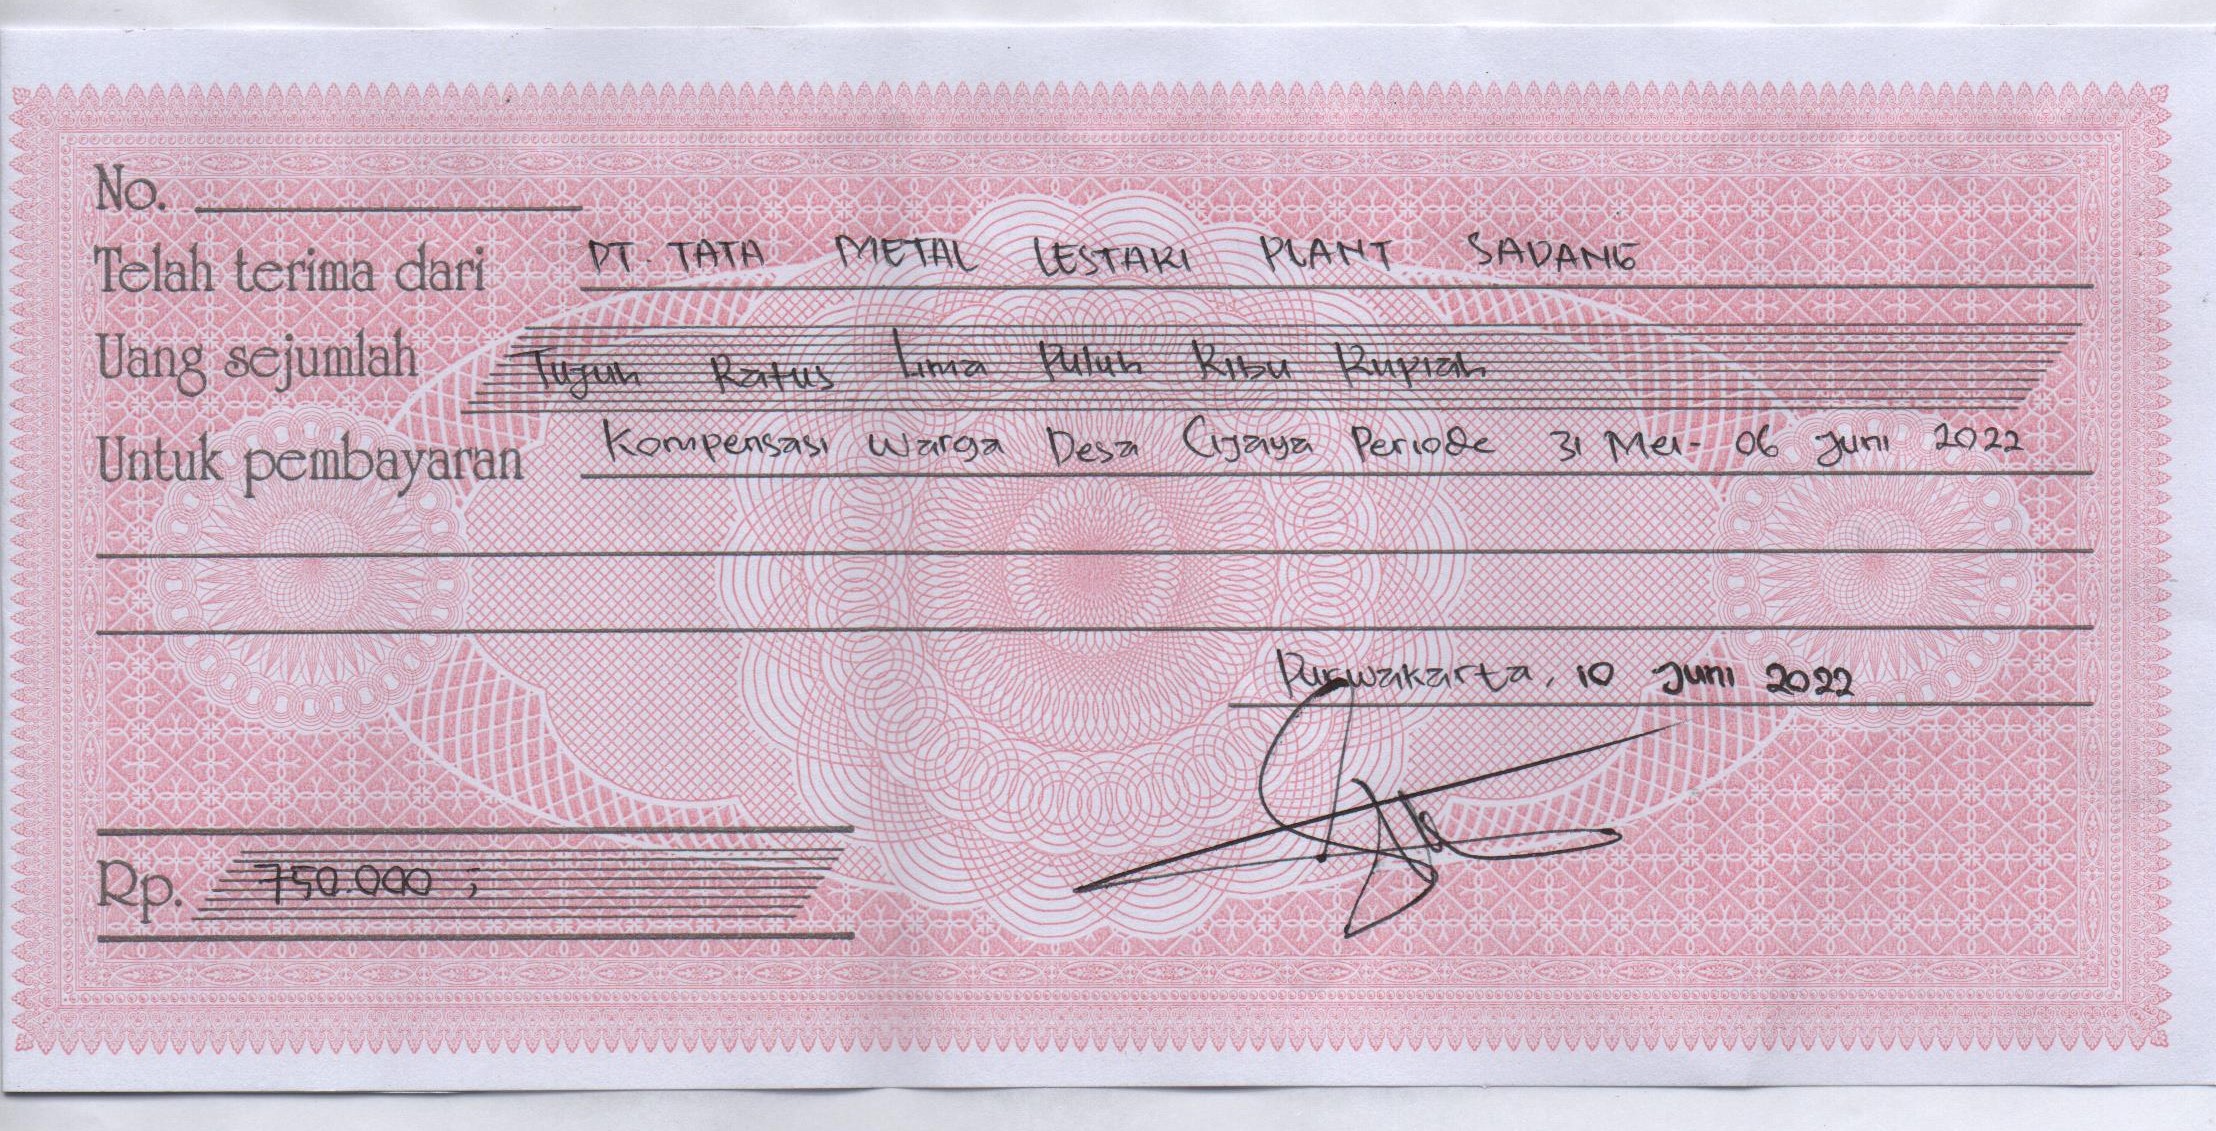 No.
Telah terima dari PT. TATA METAL LESTARI PLANT SADANG
Uang sejumlah Tujuh Ratus Lima Puluh Ribu Rupiah
Untuk pembayaran Kompensasi Warga Desa Cijaya Periode 31 Mei - 06 Juni 2022
Purwakarta, 10 Juni 2022
Rp. 750.000 ;